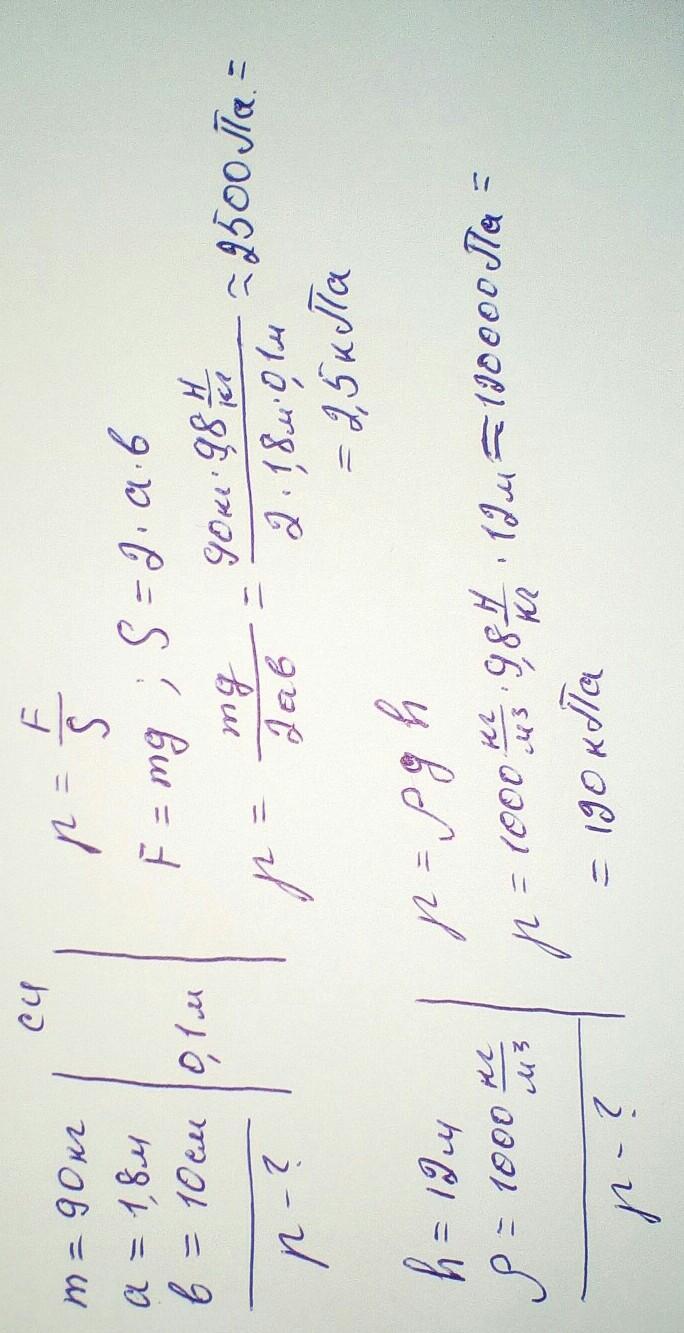 СИ
m = 90кг
a = 1,8м
в = 10см
0,1м
p - ?
p = F/S
F = mg ; S = 2 · a · в
p = mg/2aв = 90кг · 9,8 Н/кг / 2 · 1,8м · 0,1м ≈ 2500Па =
= 2,5кПа
h = 12м
ρ = 1000 кг/м3
p - ?
p = ρ g h
p = 1000 кг/м3 · 9,8 Н/кг · 12м ≈ 120000Па =
= 120кПа